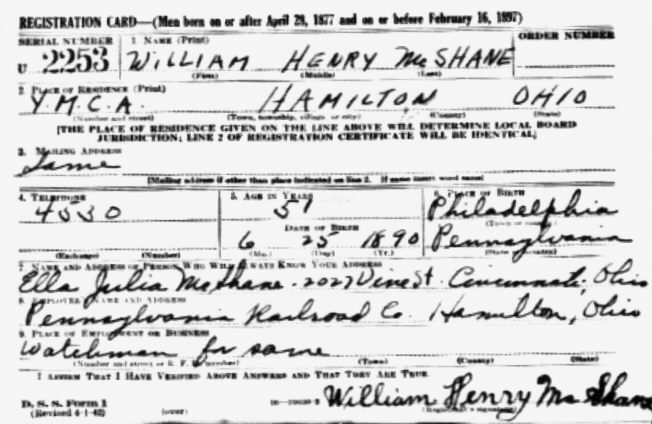 REGISTRATION CARD—(Men born on or after April 28, 1877 and on or before February 16, 1897)
SERIAL NUMBER 1. NAME (Print) ORDER NUMBER
U 2253 WILLIAM HENRY McSHANE
(First) (Middle) (Last)
2. PLACE OF RESIDENCE (Print)
Y.M.C.A. HAMILTON OHIO
(Number and street) (Town, township, village, or city) (County) (State)
[THE PLACE OF RESIDENCE GIVEN ON THE LINE ABOVE WILL DETERMINE LOCAL BOARD
JURISDICTION; LINE 2 OF REGISTRATION CERTIFICATE WILL BE IDENTICAL]
3. MAILING ADDRESS
Same
[Mailing address if other than place indicated on line 2. If same insert word same]
4. TELEPHONE 5. AGE IN YEARS 6. PLACE OF BIRTH
4530 51 Philadelphia
DATE OF BIRTH
6 25 1890 Pennsylvania
(Exchange) (Number) (Mo.) (Day) (Yr.)
7. NAME AND ADDRESS OF PERSON WHO WILL ALWAYS KNOW YOUR ADDRESS
Ella Julia McShane. 2027 Vine St. Cincinnati, Ohio
8. EMPLOYER'S NAME AND ADDRESS
Pennsylvania Railroad Co. Hamilton, Ohio
9. PLACE OF EMPLOYMENT OR BUSINESS
Watchman for same
(Number and street or R. F. D. number) (Town) (County) (State)
I AFFIRM THAT I HAVE VERIFIED ABOVE ANSWERS AND THAT THEY ARE TRUE.
William Henry McShane
D. S. S. Form 1
(Revised 4-1-42) (over) (Registrant's signature)